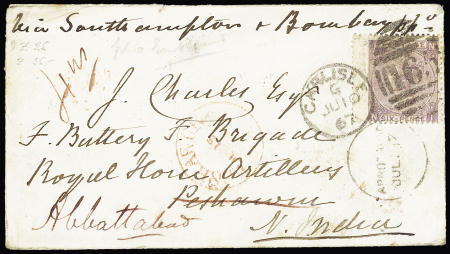 via Southampton & Bombay
J. Charles Esqr
F. Battery F. Brigade
Royal Horse Artillery
Peshawur
Abbattabad
N. India
CARLISLE
G
JU 19
67
D6
SIX PENCE